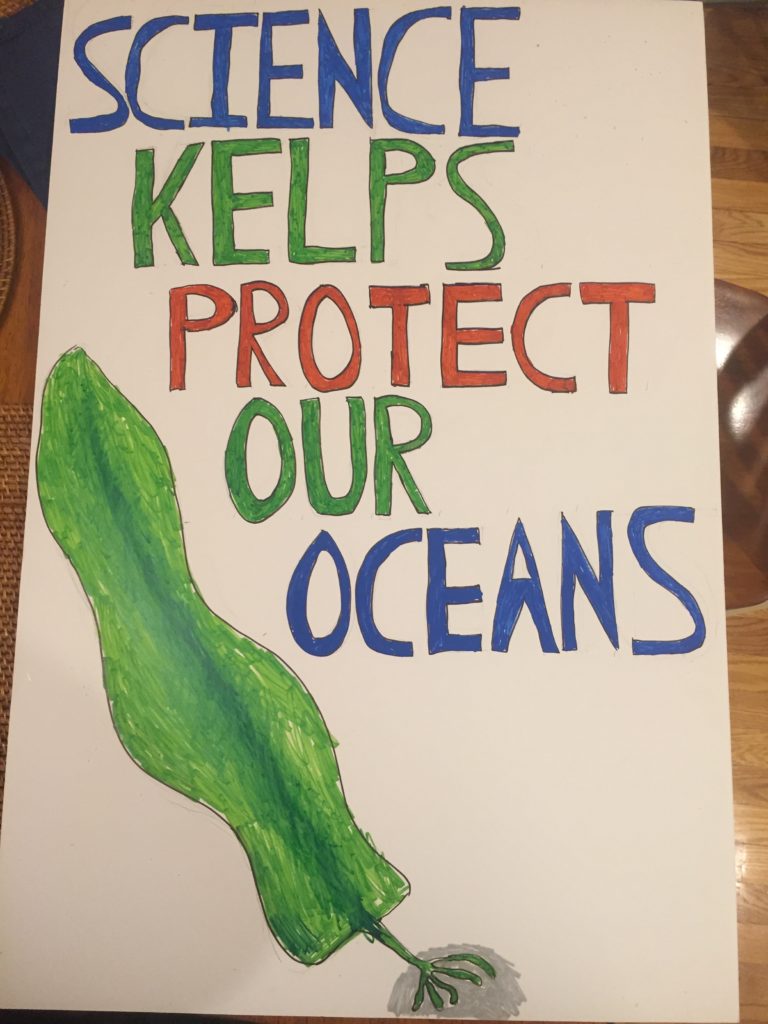 SCIENCE
KELPS
PROTECT
OUR
OCEANS